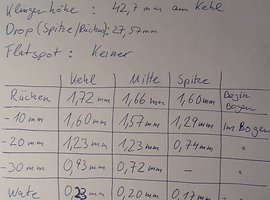 Klingenhöhe : 42,7 mm am Kehl
Drop (Spitze/Rücken): 27,57mm
Flatspot : Keiner
Kehl Mitte Spitze
Rücken 1,72 mm 1,66 mm 1,60mm Begin Bogen
-10 mm 1,60mm 1,57mm 1,29 mm im Bogen
-20 mm 1,23 mm 1,13 mm 0,74mm "
-30 mm 0,93 mm 0,72 mm – "
Wate 0,23 mm 0,20 mm 0,17 mm "